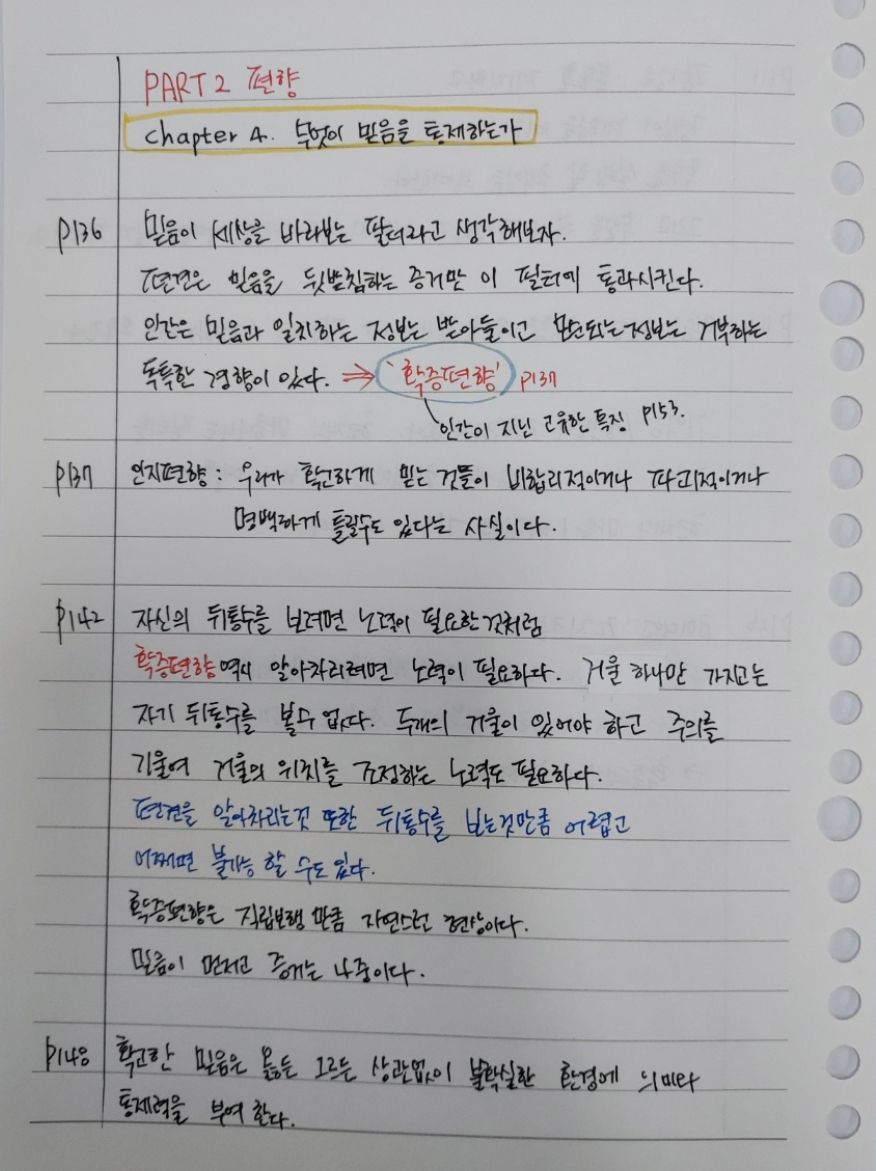 PART 2 편향
Chapter 4. 무엇이 믿음을 통제하는가
P136 믿음이 세상을 바라보는 필터라고 생각해보자.
편견은 믿음을 뒷받침하는 증거만 이 필터에 통과시킨다.
인간은 믿음과 일치하는 정보는 받아들이고 모순되는 정보는 거부하는
독특한 경향이 있다. ⇒ '확증편향' P137
인간이 지닌 고유한 특징 P153.
P137 인지편향 : 우리가 확고하게 믿는 것들이 비합리적이거나 파괴적이거나
명백하게 틀릴수도 있다는 사실이다.
P142 자신의 뒤통수를 보려면 노력이 필요한것처럼
확증편향 역시 알아차리려면 노력이 필요하다. 거울 하나만 가지고는
자기 뒤통수를 볼수 없다. 두개의 거울이 있어야 하고 주의를
기울여 거울의 위치를 조정하는 노력도 필요하다.
편견을 알아차리는것 또한 뒤통수를 보는것만큼 어렵고
어쩌면 불가능 할 수도 있다.
확증편향은 직립보행 만큼 자연스런 현상이다.
믿음이 먼저고 증거는 나중이다.
P148 확고한 믿음은 옳든 그르든 상관없이 불확실한 환경에 의미와
통제력을 부여 한다.